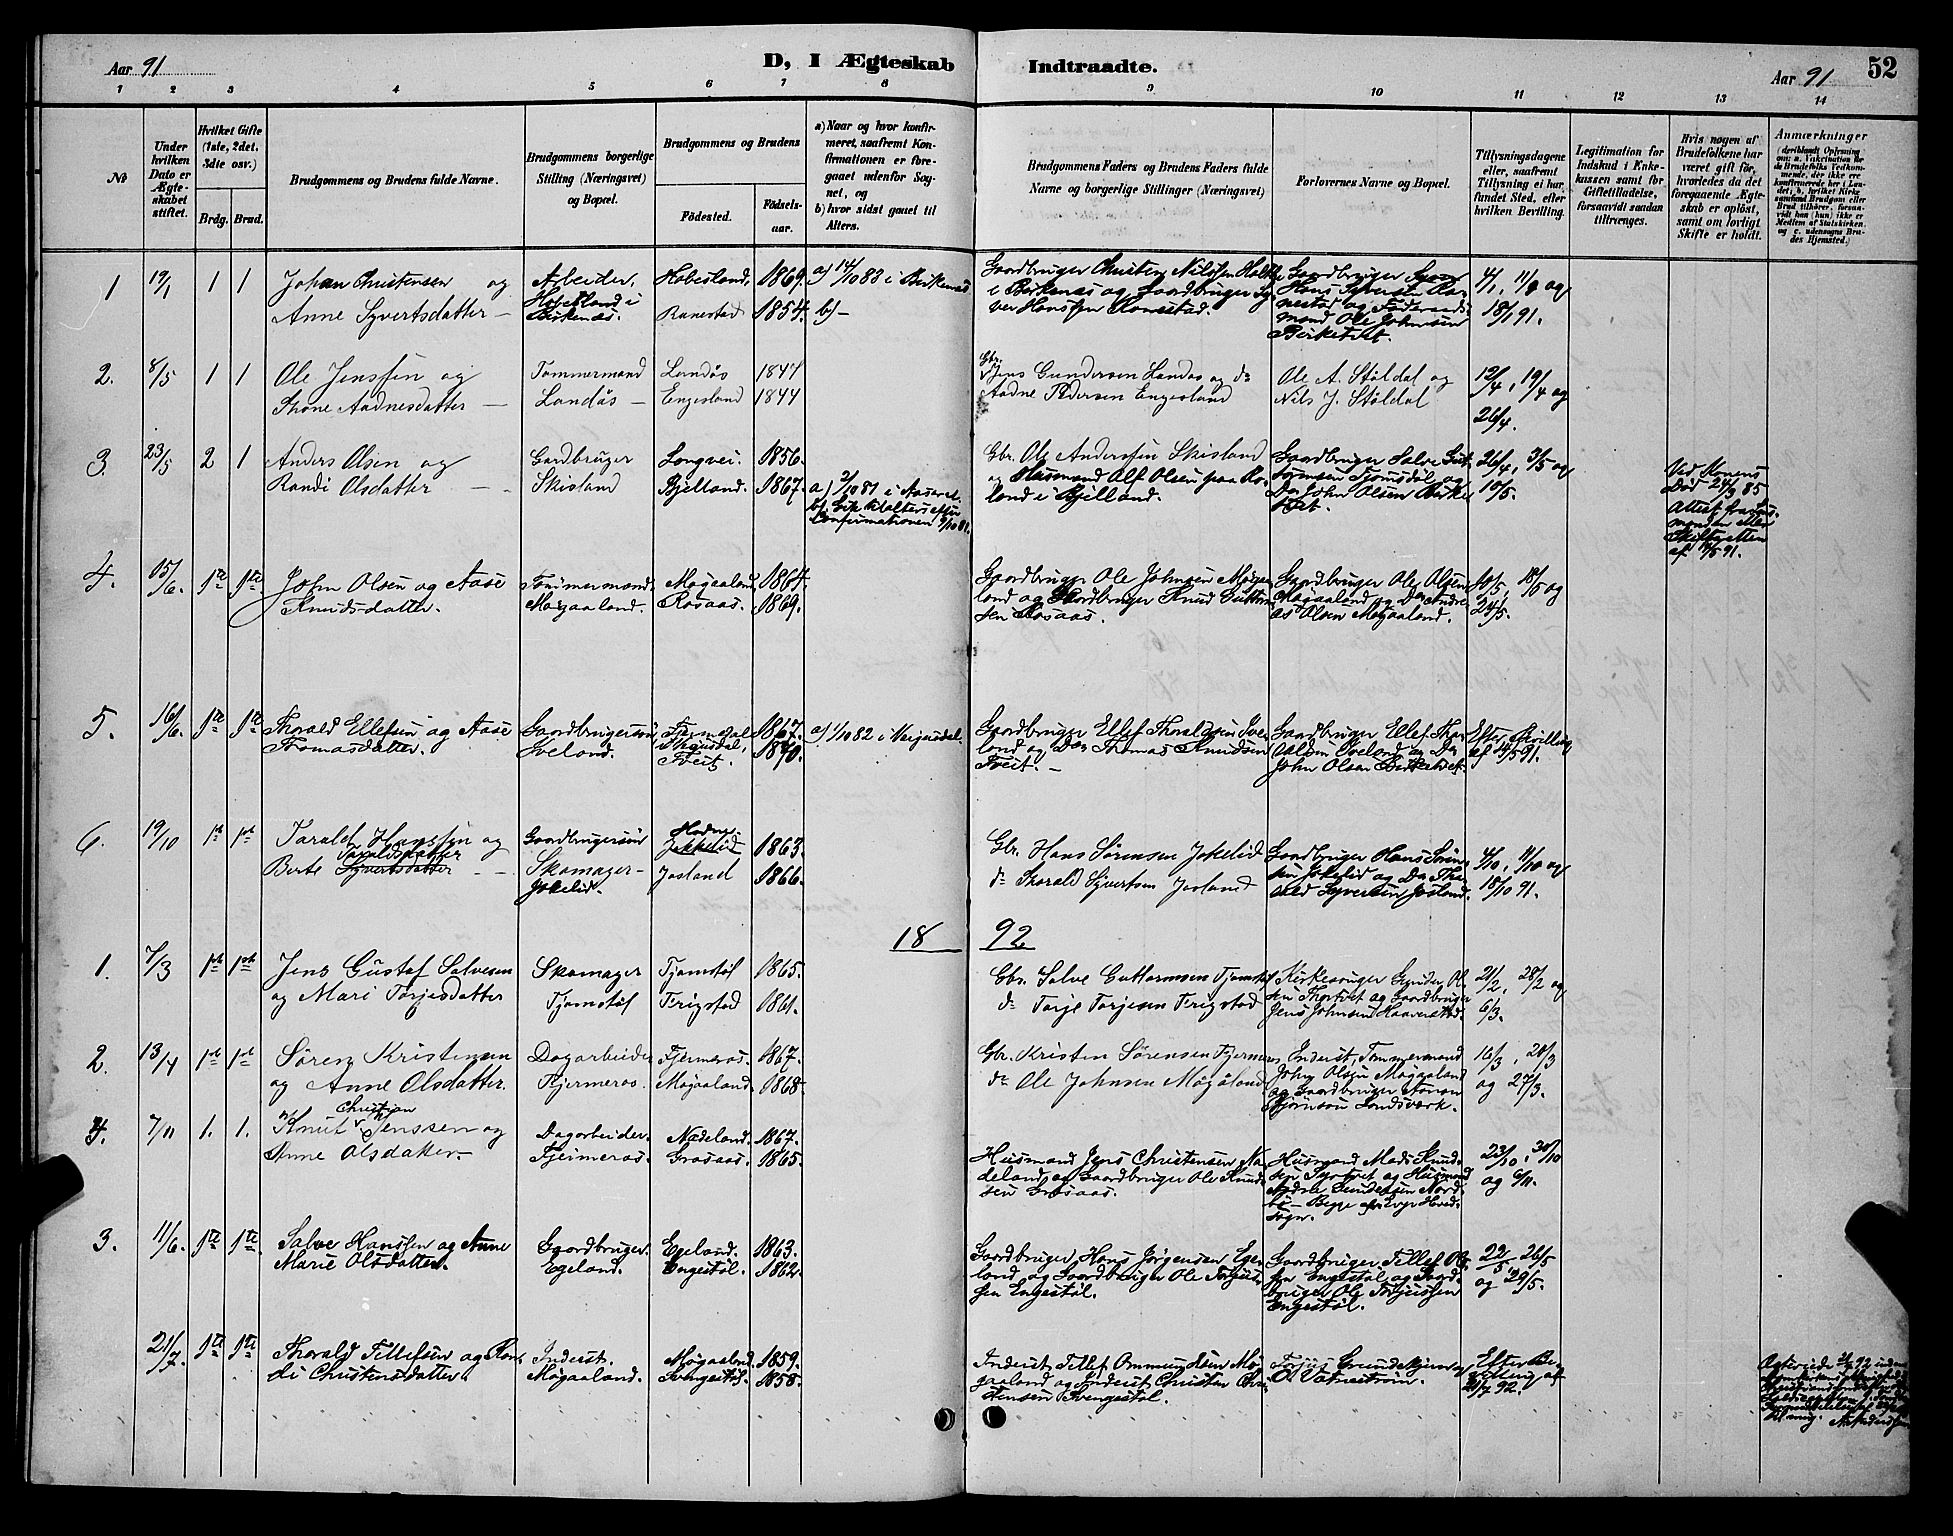 Aar 91
D, I Ægteskab Indtraadte.
Aar 91
52
1 2 3 4 5 6 7 8 9 10 11 12 13 14
No
Under hvilken Dato er Ægteskabet stiftet.
Hvilket Gifte (1ste, 2det, 3die osv.)
Brdg. Brud.
Brudgommens og Brudens fulde Navne.
Brudgommens borgerlige Stilling (Næringsvei) og Bopæl.
Brudgommens og Brudens
Fødested.
Fødselsaar.
a) Naar og hvor konfirmeret, saafremt Konfirmationen er foregaaet udenfor Sognet, og
b) hvor sidst gaaet til Alters.
Brudgommens Faders og Brudens Faders fulde Navne og borgerlige Stillinger (Næringsvei)
Forlovernes Navne og Bopæl.
Tillysningsdagene eller, saafremt Tillysning ei har fundet Sted, efter hvilken Bevilling.
Legitimation for Indskud i Enkekassen samt for Giftetilladelse, forsaavidt saadan tiltrænges.
Hvis nogen af Brudefolkene har været gift før, hvorledes da det foregaaende Ægteskab er opløst, samt om lovligt Skifte er holdt.
Anmærkninger
1 19/1 1 1 Johan Christensen og
Anne Syvertsdatter —
Arbeider,
Hobesland i
Birkenes.
Hobesland, 1869.
Ranestad 1854.
a) 14/10 83 i Birkenes
b) —
Gaardbruger Christen Nilssen
i Birkenes og Gaardbruger Sy
ver Hanssen Ranestad.
Gaardbruger
Hans Syversen Ra
nestad og Føderaads
mand Ole Johnsen
Birketvet.
4/1, 11/1 og
18/1 91.
2. 8/5 1 1 Ole Jenssen og
Thone Aadnesdatter —
Tømmermand
Landås —
Landås 1847
Engesland 1844
Gbr. Jens Gundersen Landås og do
Aadne Pedersen Engesland
Ole A. Støldal og
Nils J. Støldal
12/4, 19/4 og
26/4.
3. 23/5 2 1 Anders Olsen og
Randi Olsdatter —
Gardbruger
Skisland
Longvei. 1856.
Bjelland. 1867.
a) 2/10 81 i Aaseral.
Gbr. Ole Anderssen Skisland
og Husmand Alf Olsen paa Ro
land i Bjelland.
Gaardbruger Salve Gut
tormsen Tjomsdøl og
Do John Olsen Birke
tvet.
26/4, 3/5 og
10/5.
Ved Konens
Død 24/3 85
Attest fra
Skifteretten
af 19/5 91.
4. 15/6. 1ste 1ste John Olsen og Aase
Knudsdatter.
Tømmermand.
Mogaaland.
Mogaaland. 1864.
Rosaas. 1869.
Gaardbruger Ole Johnsen Møgaa
land og Gardbruger Knud Guttorm
sen Rosaas.
Gaardbruger Ole Olsen
Mogaaland og Do Andre
as Olsen Møgaaland.
10/5, 18/5 og
24/5.
5. 16/6. 1ste 1ste Thorald Ellefsen og Aase
Thomasdatter.
Gaardbrugersøn
Iveland.
Tveit.
1867.
1870.
a) 1/10 82 i Vegusdal.
Gaardbruger Ellef Thoraldsen Ive
land og Do Thomas Knudsen
Tveit. —
Gaardbruger Ellef Tho
raldsen Iveland og Do
John Olsen Birketvet.
6. 19/10 1ste 1ste Tarald Hanssen og
Berte Taraldsdatter
Syvertsdatter —
Gaardbrugersøn
Skomager —
Jokelid.
Jokelid 1863.
Josland 1866.
Gbr. Hans Sørensen Jokelid
do Thorald Syvertsen Josland
Gaardbruger Hans Søren
sen Jokelid og Do Tho
rald Syversen Josland.
4/10, 11/10 og
18/10 91.
18 92
1. 7/3 1ste 1ste Jens Gustaf Salvesen
og Mari Torjesdatter
Skomager
Tjomstøl
Tjomstøl 1865.
Frigstad 1861.
Gbr. Salve Guttormsen Tjomstøl
do Torje Torjesen Frigstad
Kirkesanger Gunder Ol
sen Thortvet og Gaardbruger
Jens Johnsen Haaverstad.
21/2, 28/2 og
6/3.
2. 13/4 1ste 1ste Søren Kristensen
og Anne Olsdatter.
Dagarbeider
Fjermeros.
Fjermeros. 1867.
Møgaaland. 1868.
Gbr. Kristen Sørensen Fjermeros
do Ole Johnsen Møgåland
Inderst, Tømmermand
John Olsen Mogaaland
og Gaardbruger Aanon
Bjørnsen Landsverk.
16/3, 20/3
og 27/3.
4. 7/11 1. 1. Knut Christian Jenssen og
Anne Olsdatter.
Dagarbeider.
Fjeimeros.
Nadeland. 1867.
Grosaas. 1865.
Husmand Jens Christensen Na
deland og Gaardbruger Ole Knud
sen Grosaas.
Husmand Mads Knud
sen og Husmand
— Begge
Sogn.
23/10, 30/10
og 6/11.
3. 11/6. 1ste 1ste Salve Hanssen og Anne
Marie Olsdatter.
Gaardbruger.
Egeland.
Egeland. 1863.
Engestøl. 1862.
Gaardbruger Hans Jørgensen Ege
land og Gaardbruger Ole Torjus
sen Engestøl.
Gaardbruger Tellef Ol
sen Engestøl og Gaard
bruger Ole Torjussen
Engestøl.
22/5, 26/5
og 29/5.
21/7. 1ste 1ste Thorald Tellefsen og Ran
di Christensdatter
Inderst.
Møgaaland.
Møgaaland. 1859.
Svengestøl. 1858.
Inderst Tellef Ommundsen Mø
gaaland og Inderst Christen Chri
stensen Svengestøl.
Torjus
O. Vatnestrøm.
Efter Be
villing af
21/7 92.